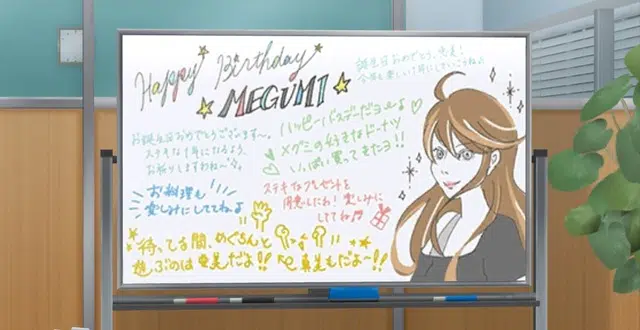 Happy Birthday
MEGUMI
誕生日おめでとう、恵美!
今年も楽しい1年にしていこうね♪
お誕生日おめでとうございます〜。
ステキな1年になるよう、
お祈りしますわね〜
ハッピーバースデーだヨーよ
メグミの好きなドーナツ
いっぱい買ってきたヨ!!
お料理も
楽しみにしててねよ
ステキなプレゼントを
用意したわ! 楽しみに
しててね♪
待ってる間、めぐみんと
遊ぶのは亜美だよ!!
真美もだよ〜!!